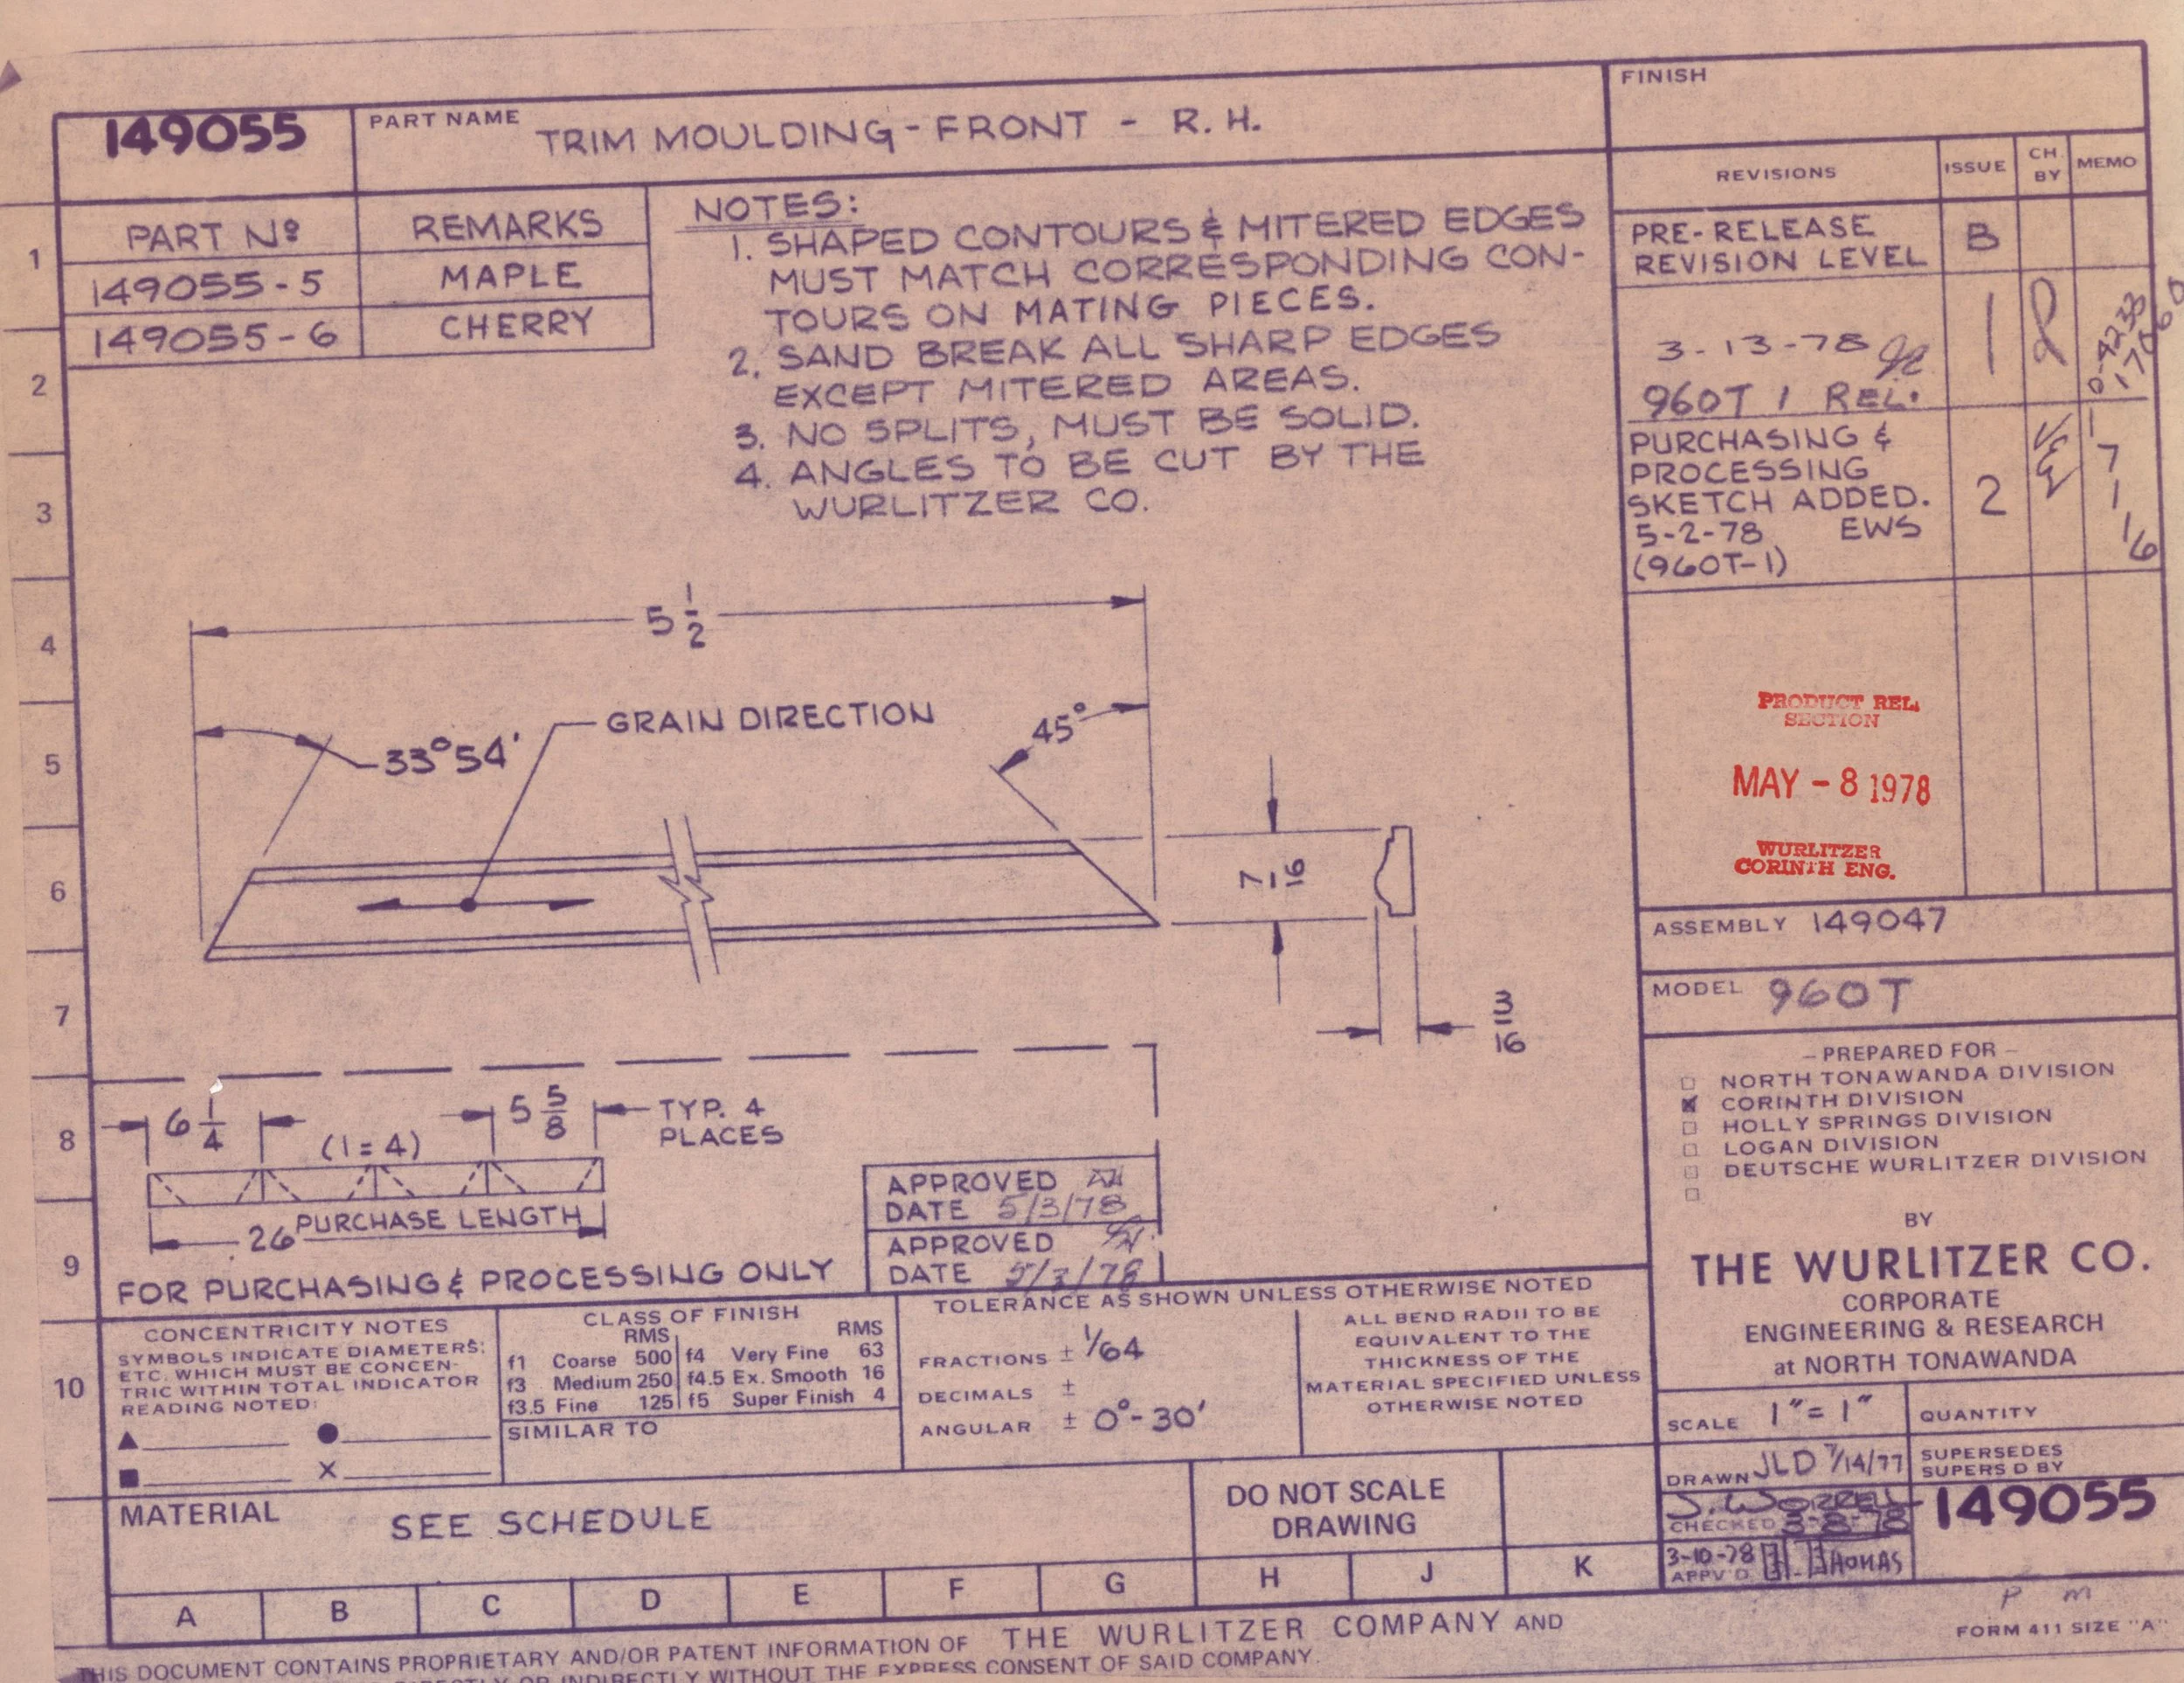 149055
PART NAME
TRIM MOULDING - FRONT - R. H.
FINISH
REVISIONS
ISSUE
CH BY
MEMO
PART Nº
REMARKS
149055-5
MAPLE
149055-6
CHERRY
NOTES:
1. SHAPED CONTOURS & MITERED EDGES
MUST MATCH CORRESPONDING CON-
TOURS ON MATING PIECES.
2. SAND BREAK ALL SHARP EDGES
EXCEPT MITERED AREAS.
3. NO SPLITS, MUST BE SOLID.
4. ANGLES TO BE CUT BY THE
WURLITZER CO.
PRE-RELEASE
REVISION LEVEL
B
3-13-78
960T 1 REL.
1
PURCHASING &
PROCESSING
SKETCH ADDED.
5-2-78 EWS
(960T-1)
2
1
2
3
4
5
6
7
8
9
10
5 1/2
33°54'
GRAIN DIRECTION
45°
7/16
3/16
PRODUCT REL.
SECTION
MAY - 8 1978
WURLITZER
CORINTH ENG.
ASSEMBLY 149047
MODEL 960T
- PREPARED FOR -
NORTH TONAWANDA DIVISION
CORINTH DIVISION
HOLLY SPRINGS DIVISION
LOGAN DIVISION
DEUTSCHE WURLITZER DIVISION
BY
THE WURLITZER CO.
CORPORATE
ENGINEERING & RESEARCH
at NORTH TONAWANDA
6 1/4
(1=4)
5 5/8
TYP. 4
PLACES
26 PURCHASE LENGTH
FOR PURCHASING & PROCESSING ONLY
APPROVED
DATE 5/3/78
APPROVED
DATE
CONCENTRICITY NOTES
SYMBOLS INDICATE DIAMETERS;
ETC. WHICH MUST BE CONCEN-
TRIC WITHIN TOTAL INDICATOR
READING NOTED:
CLASS OF FINISH
RMS RMS
f1 Coarse 500 f4 Very Fine 63
f3 Medium 250 f4.5 Ex. Smooth 16
f3.5 Fine 125 f5 Super Finish 4
SIMILAR TO
TOLERANCE AS SHOWN UNLESS OTHERWISE NOTED
FRACTIONS ± 1/64
DECIMALS ±
ANGULAR ± 0°-30'
ALL BEND RADII TO BE
EQUIVALENT TO THE
THICKNESS OF THE
MATERIAL SPECIFIED UNLESS
OTHERWISE NOTED
SCALE 1"=1"
QUANTITY
DRAWN JLD 7/14/77
SUPERSEDES
SUPERS'D BY
CHECKED 3-8-78
149055
3-10-78
APPV'D. THOMAS
MATERIAL
SEE SCHEDULE
DO NOT SCALE
DRAWING
A B C D E F G H J K
P M
FORM 411 SIZE "A"
THIS DOCUMENT CONTAINS PROPRIETARY AND/OR PATENT INFORMATION OF THE WURLITZER COMPANY AND
DIRECTLY OR INDIRECTLY WITHOUT THE EXPRESS CONSENT OF SAID COMPANY.